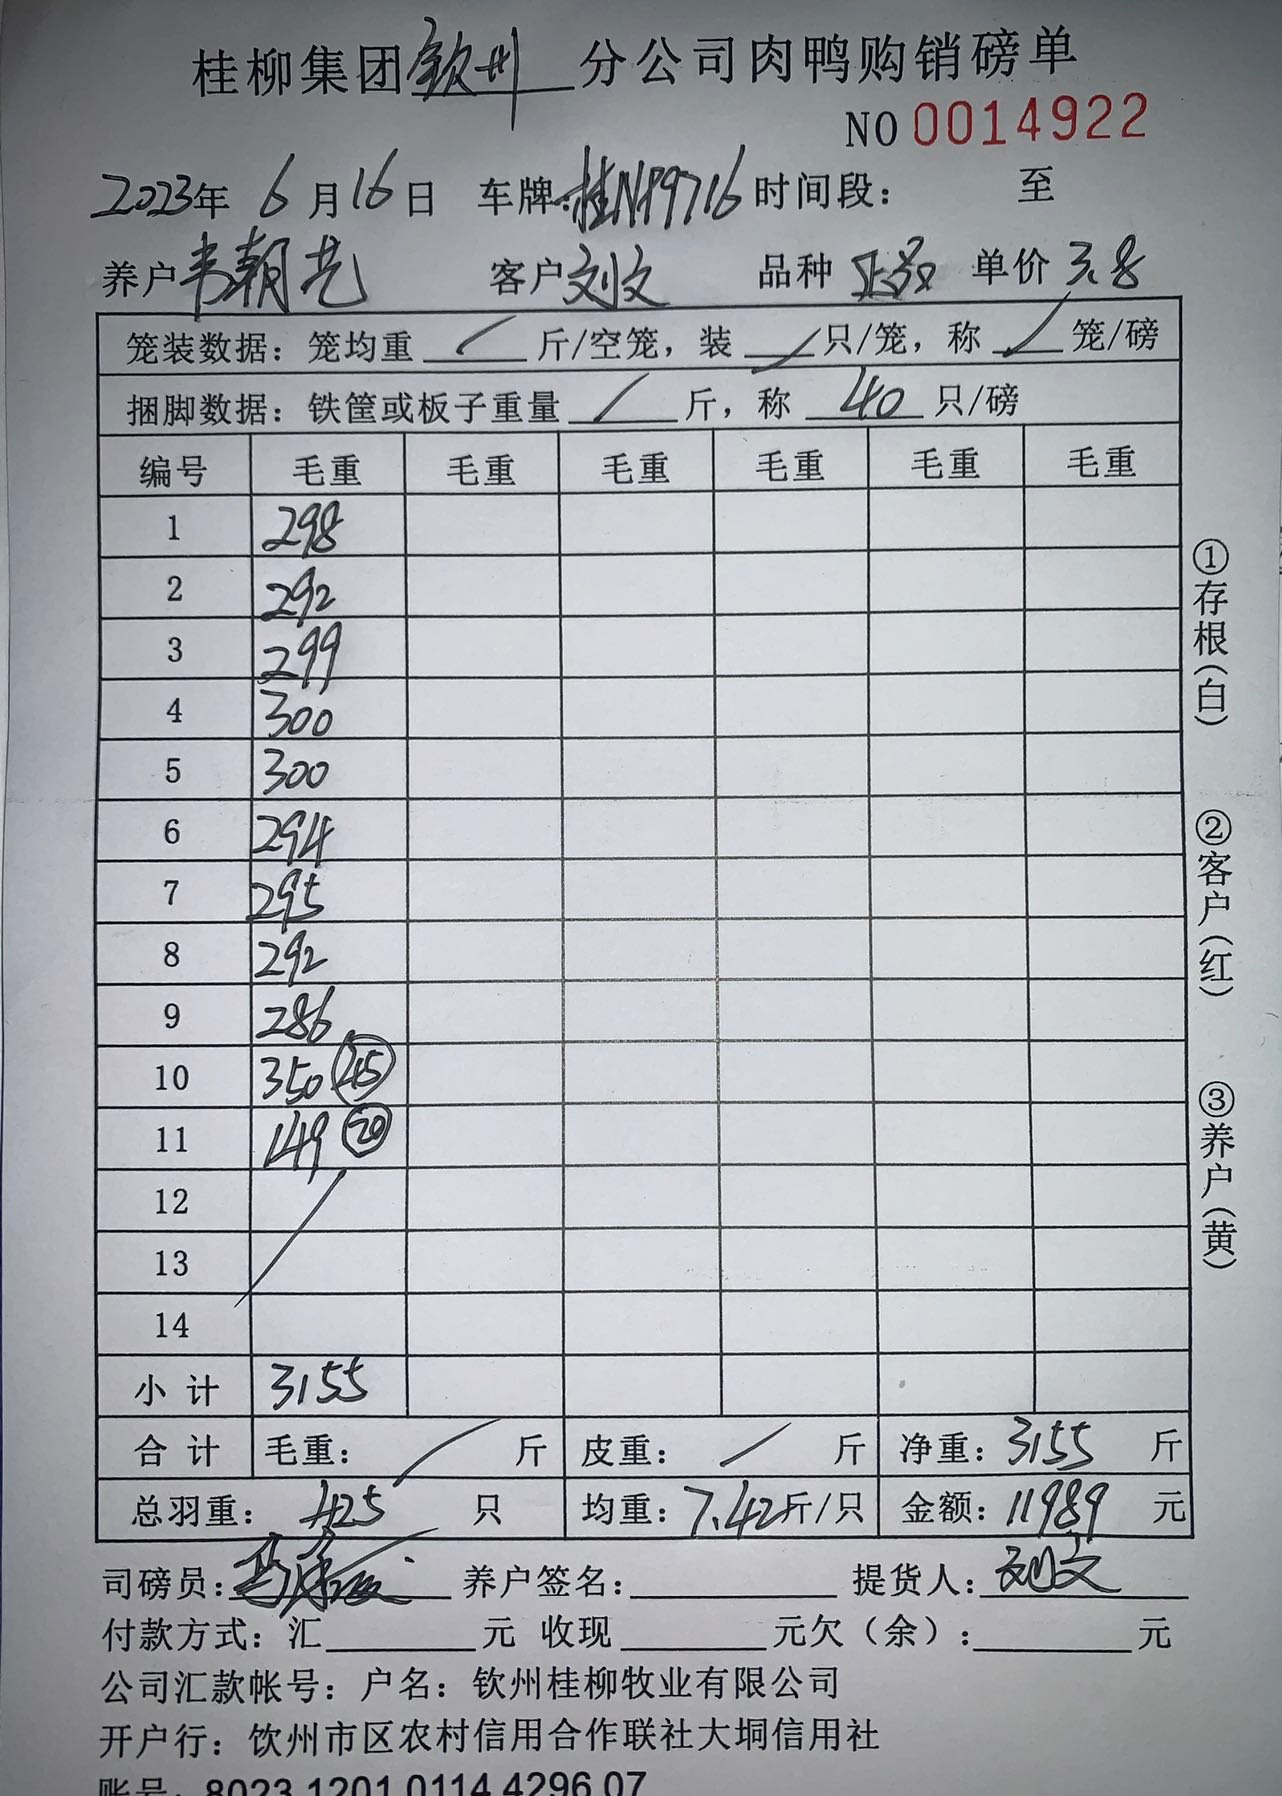 桂柳集团钦州分公司肉鸭购销磅单
NO 0014922
2023年 6月16日 车牌:桂NP9716 时间段: 至
养户韦朝艺 客户刘文 品种 单价3.8
笼装数据:笼均重 / 斤/空笼,装 / 只/笼,称 / 笼/磅
捆脚数据:铁筐或板子重量 / 斤,称 40 只/磅
编号 毛重 毛重 毛重 毛重 毛重 毛重
1 298
2 292
3 299
4 300
5 300
6 294
7 295
8 292
9 286
10 350 45
11 149 20
12
13
14
小计 3155
合计 毛重: / 斤 皮重: / 斤 净重:3155 斤
总羽重: 425 只 均重:7.42斤/只 金额:11989 元
司磅员: 养户签名: 提货人:刘文
付款方式:汇 元 收现 元欠(余): 元
公司汇款帐号:户名:钦州桂柳牧业有限公司
开户行:饮州市区农村信用合作联社大垌信用社
账号:8023 1201 0114 4296 07
①存根(白)
②客户(红)
③养户(黄)